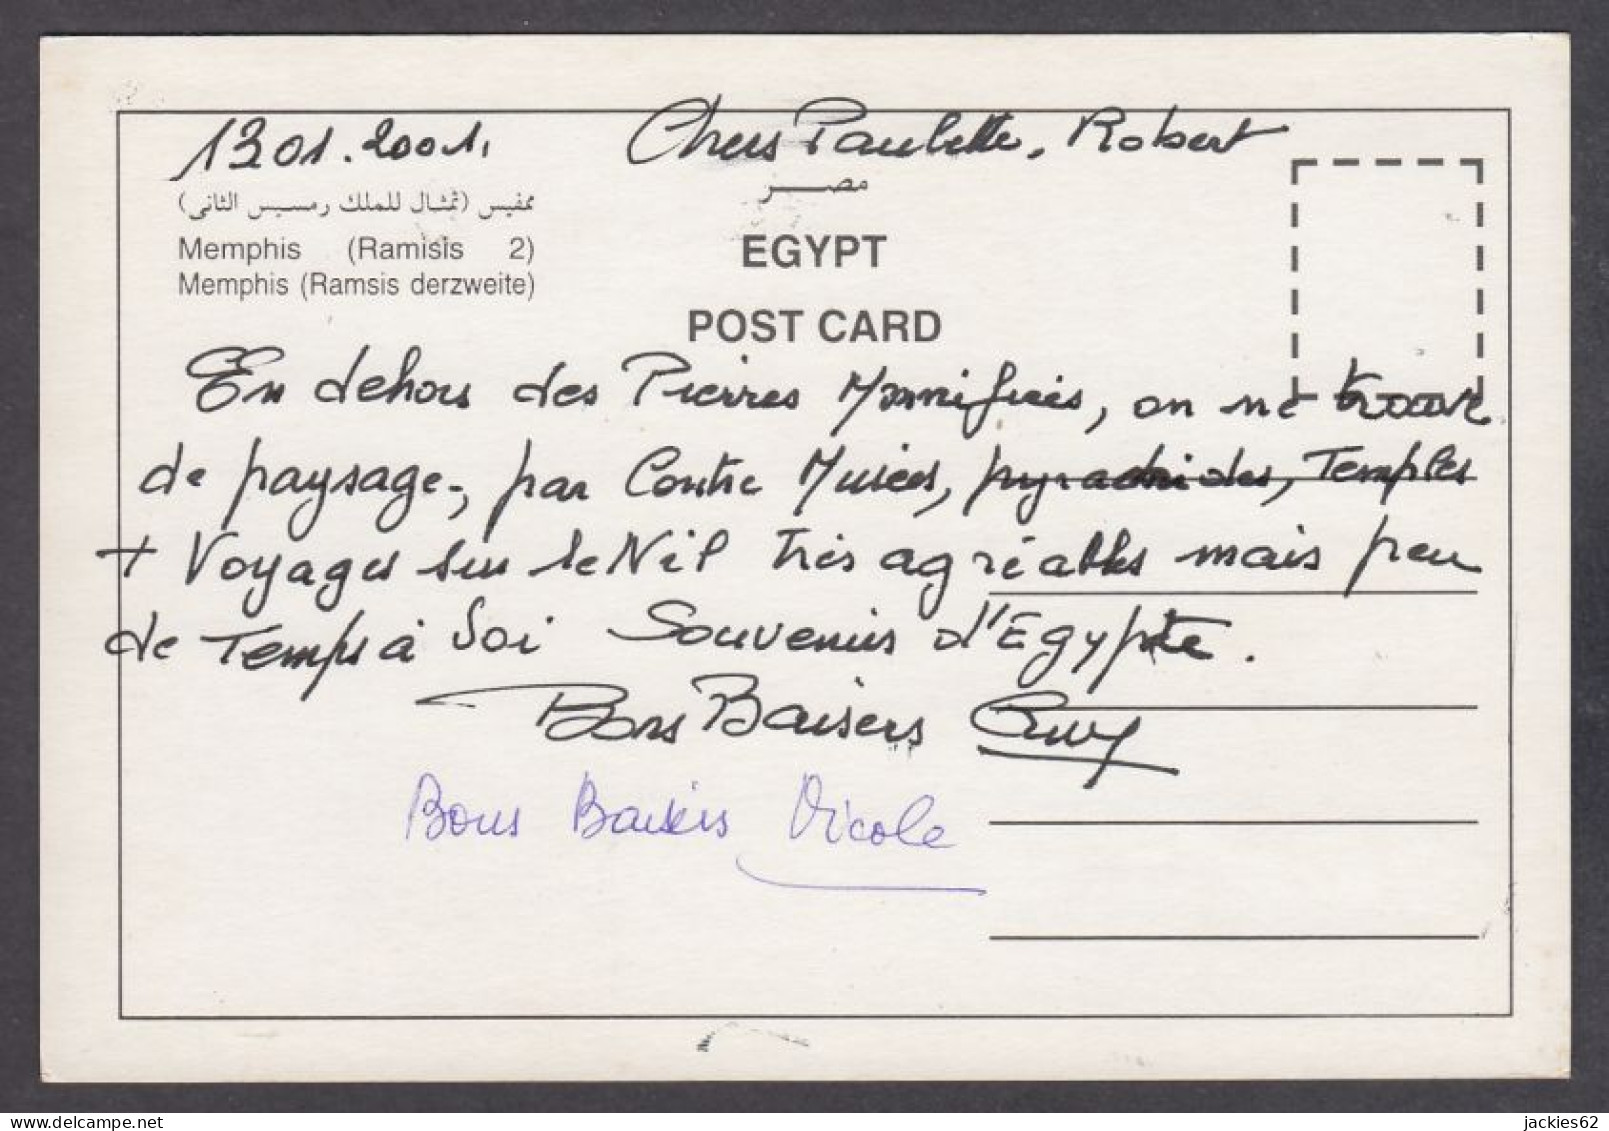 1301.2001. Chers Paulette, Robert
مصر
ممفيس (تمثال للملك رمسيس الثانى)
Memphis (Ramisis 2)
Memphis (Ramsis derzweite)
EGYPT
POST CARD
En dehors des Pierres, on ne trouve
de paysage, par Contre Musées, pyramides, Temples
+ Voyages sur le Nil très agréables mais peu
de Temps à Soi Souvenirs d'Egypte.
Bons Baisers
Bons Baisers Nicole
jackies62